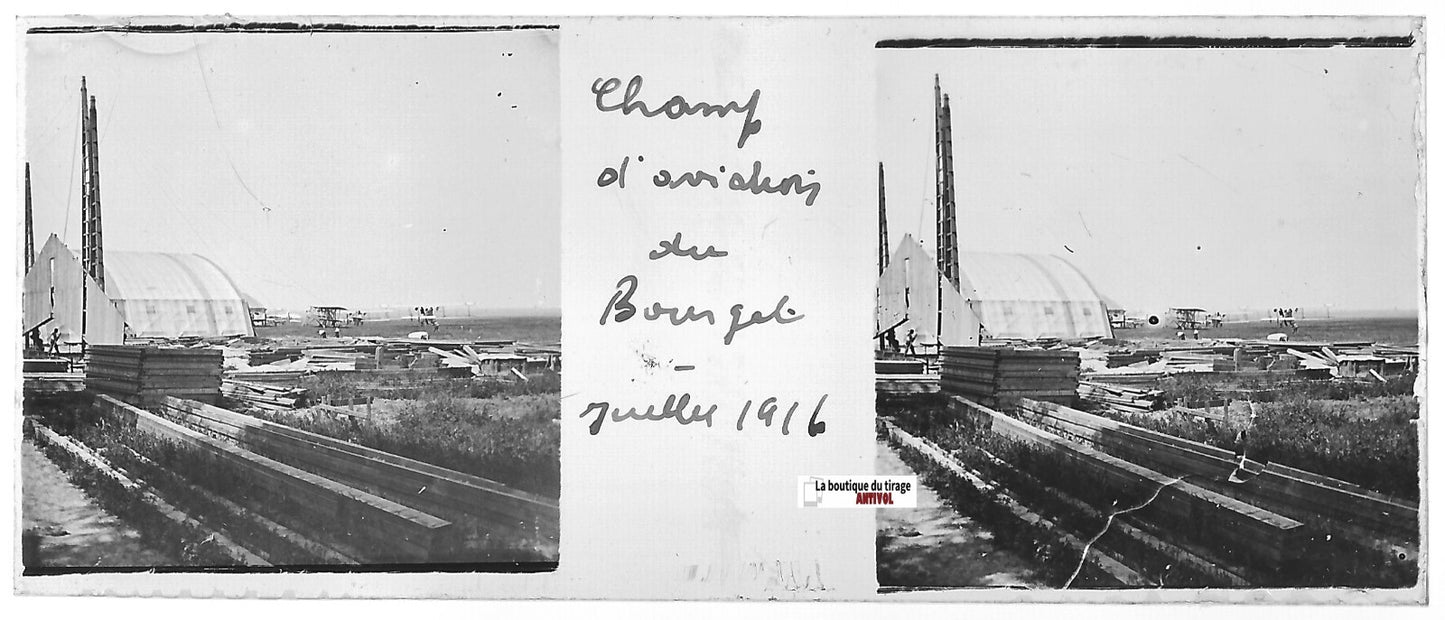 Champ
d'aviation
du
Bourget
–
Juillet 1916
La boutique du tirage
ANTIVOL